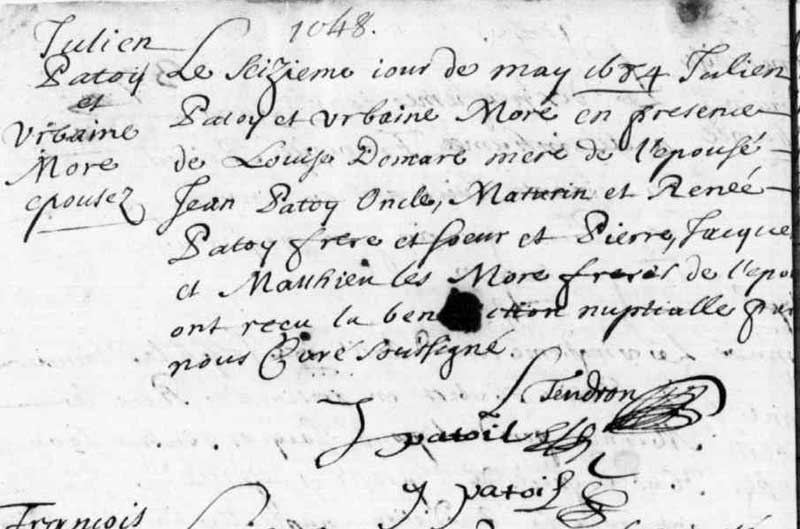 1048.
Julien
Patoy
et
Vrbaine
Moré
epousez
Le Seizieme iour de may 1684 Julien
Patoy et Vrbaine Moré en presence
de Louise Domaré mere de l'epousé
Jean Patoy Oncle, Maturin et Reneé
Patoy frere et soeur et Pierre, Jacque
et Mathieu les Moré freres de l'epou
ont receu la ben ction nuptialle par
nous Curé soussigné
Tendron
J patoil
y patois
François